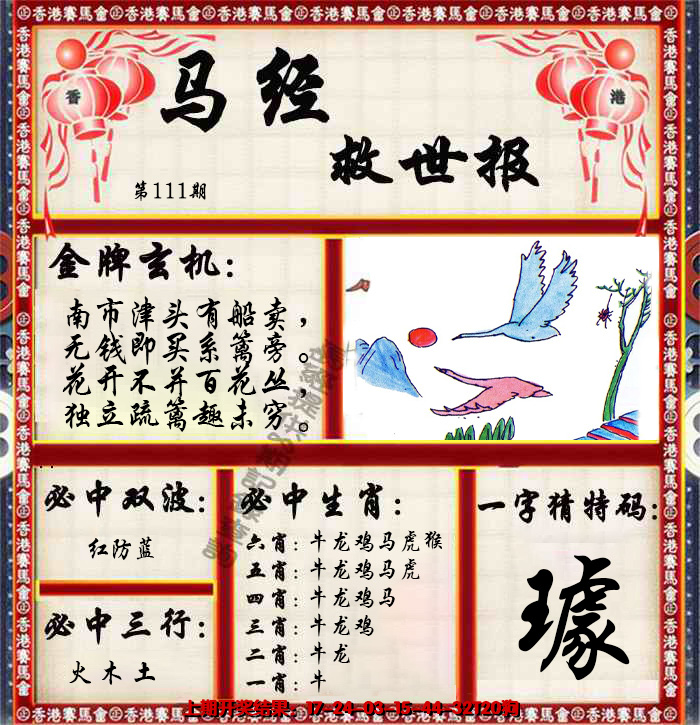 香港賽馬會
香
港
马经
救世报
第111期
金牌玄机:
南市津头有船卖，
无钱即买系篱旁。
花开不并百花丛，
独立疏篱趣未穷。
必中双波:
红防蓝
必中三行:
火木土
必中生肖:
六肖:牛龙鸡马虎猴
五肖:牛龙鸡马虎
四肖:牛龙鸡马
三肖:牛龙鸡
二肖:牛龙
一肖:牛
一字猜特码:
璩
上期开奖结果：17-24-03-15-44-32T20狗